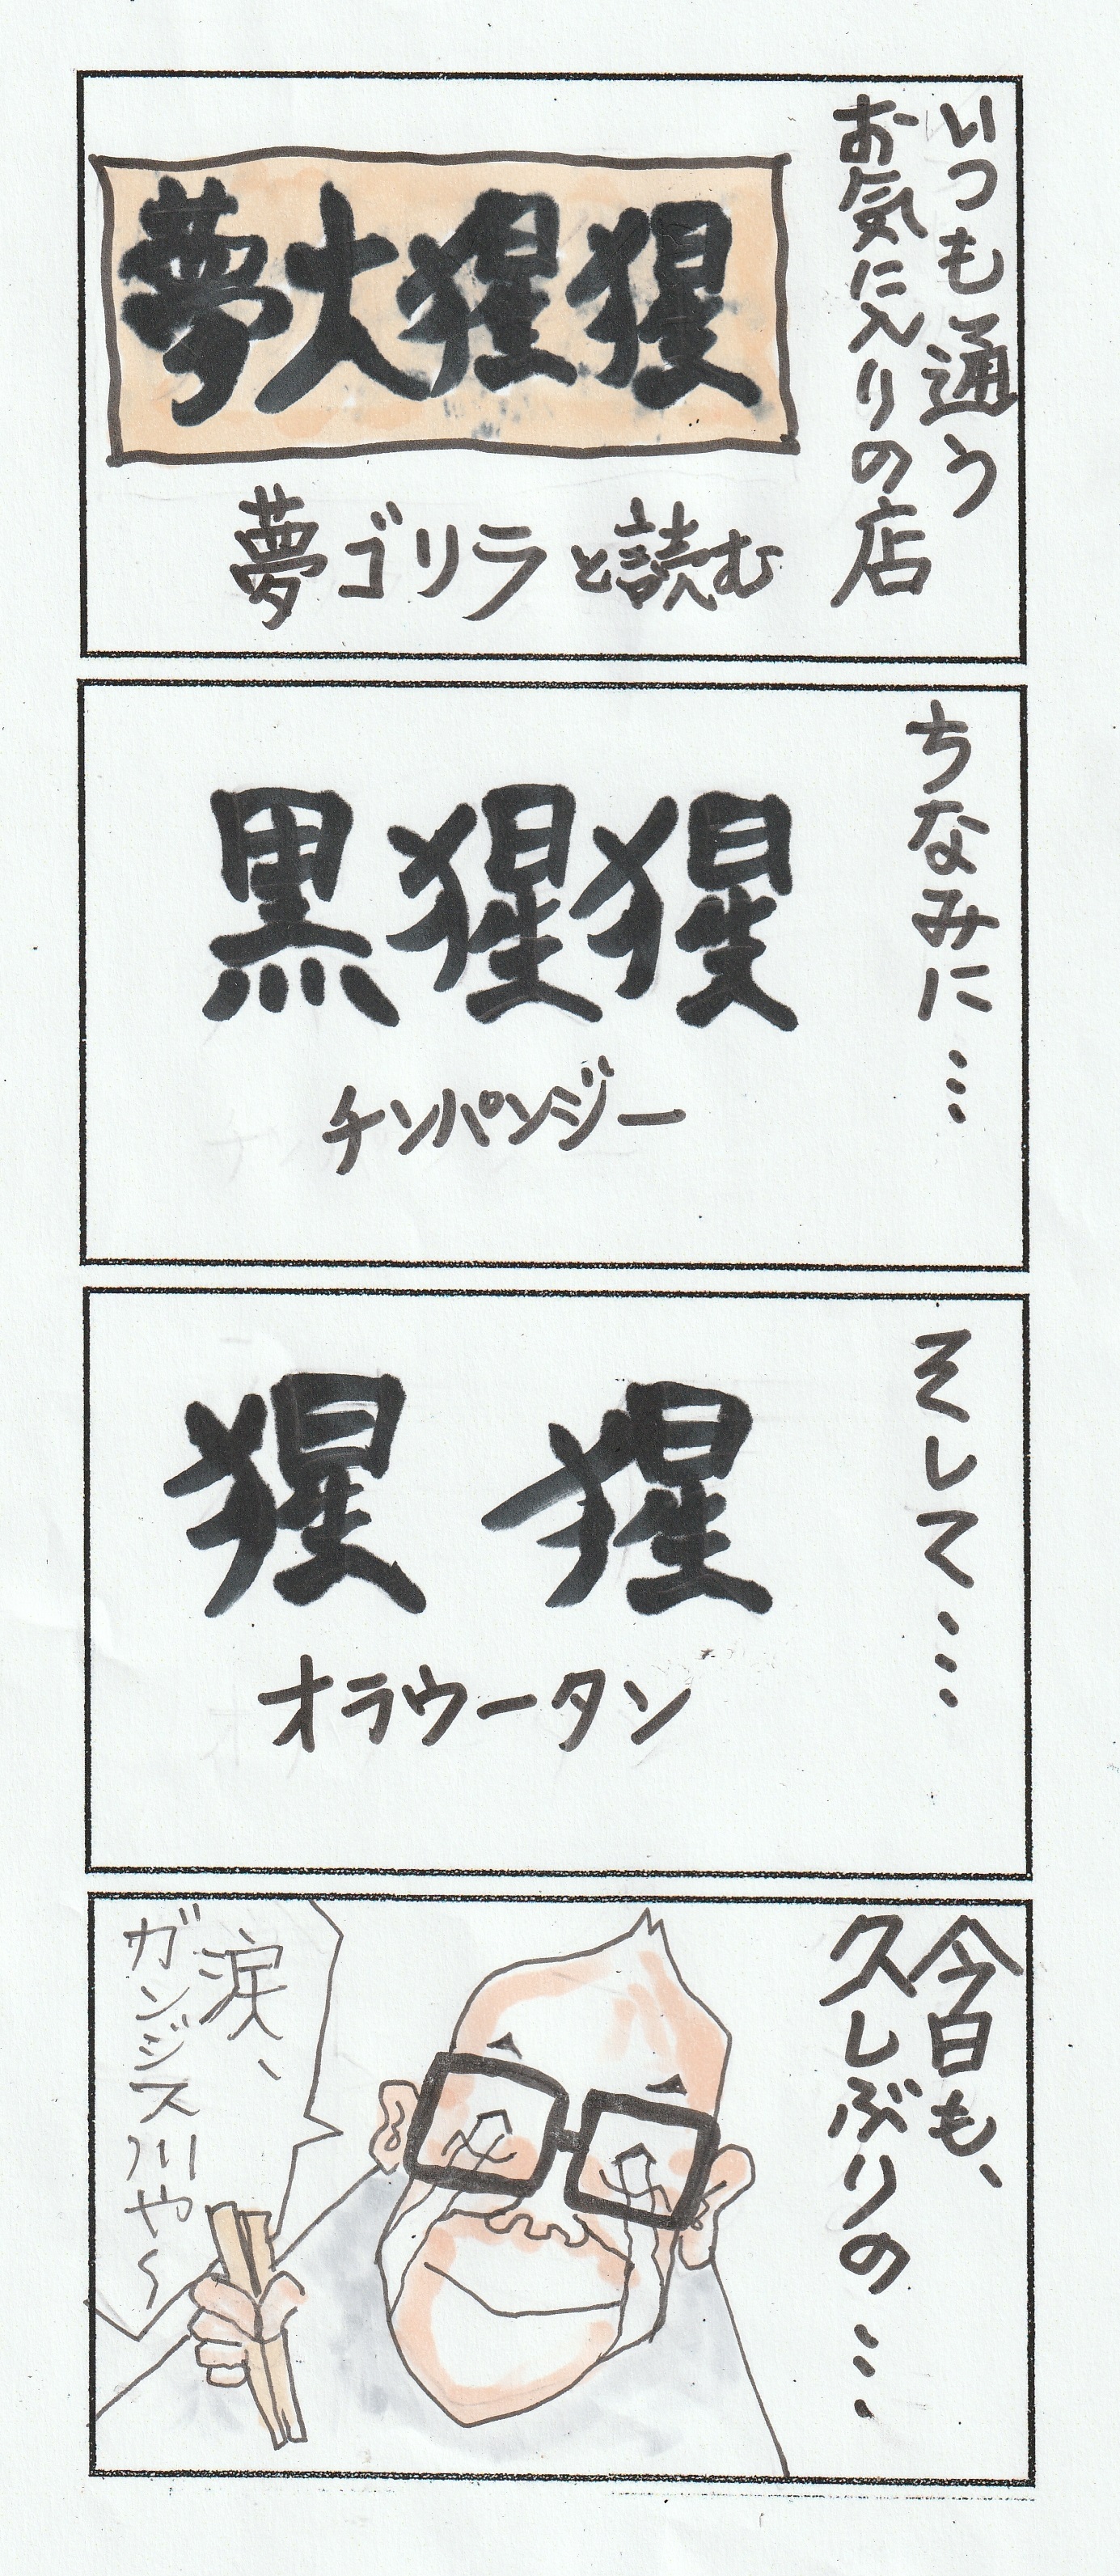 いつも通う
お気に入りの店
夢大猩猩
夢ゴリラと読む
ちなみに…
黒猩猩
チンパンジー
そして…
猩猩
オラウータン
今日も、
久しぶりの…
涙、
ガンジス川や〜